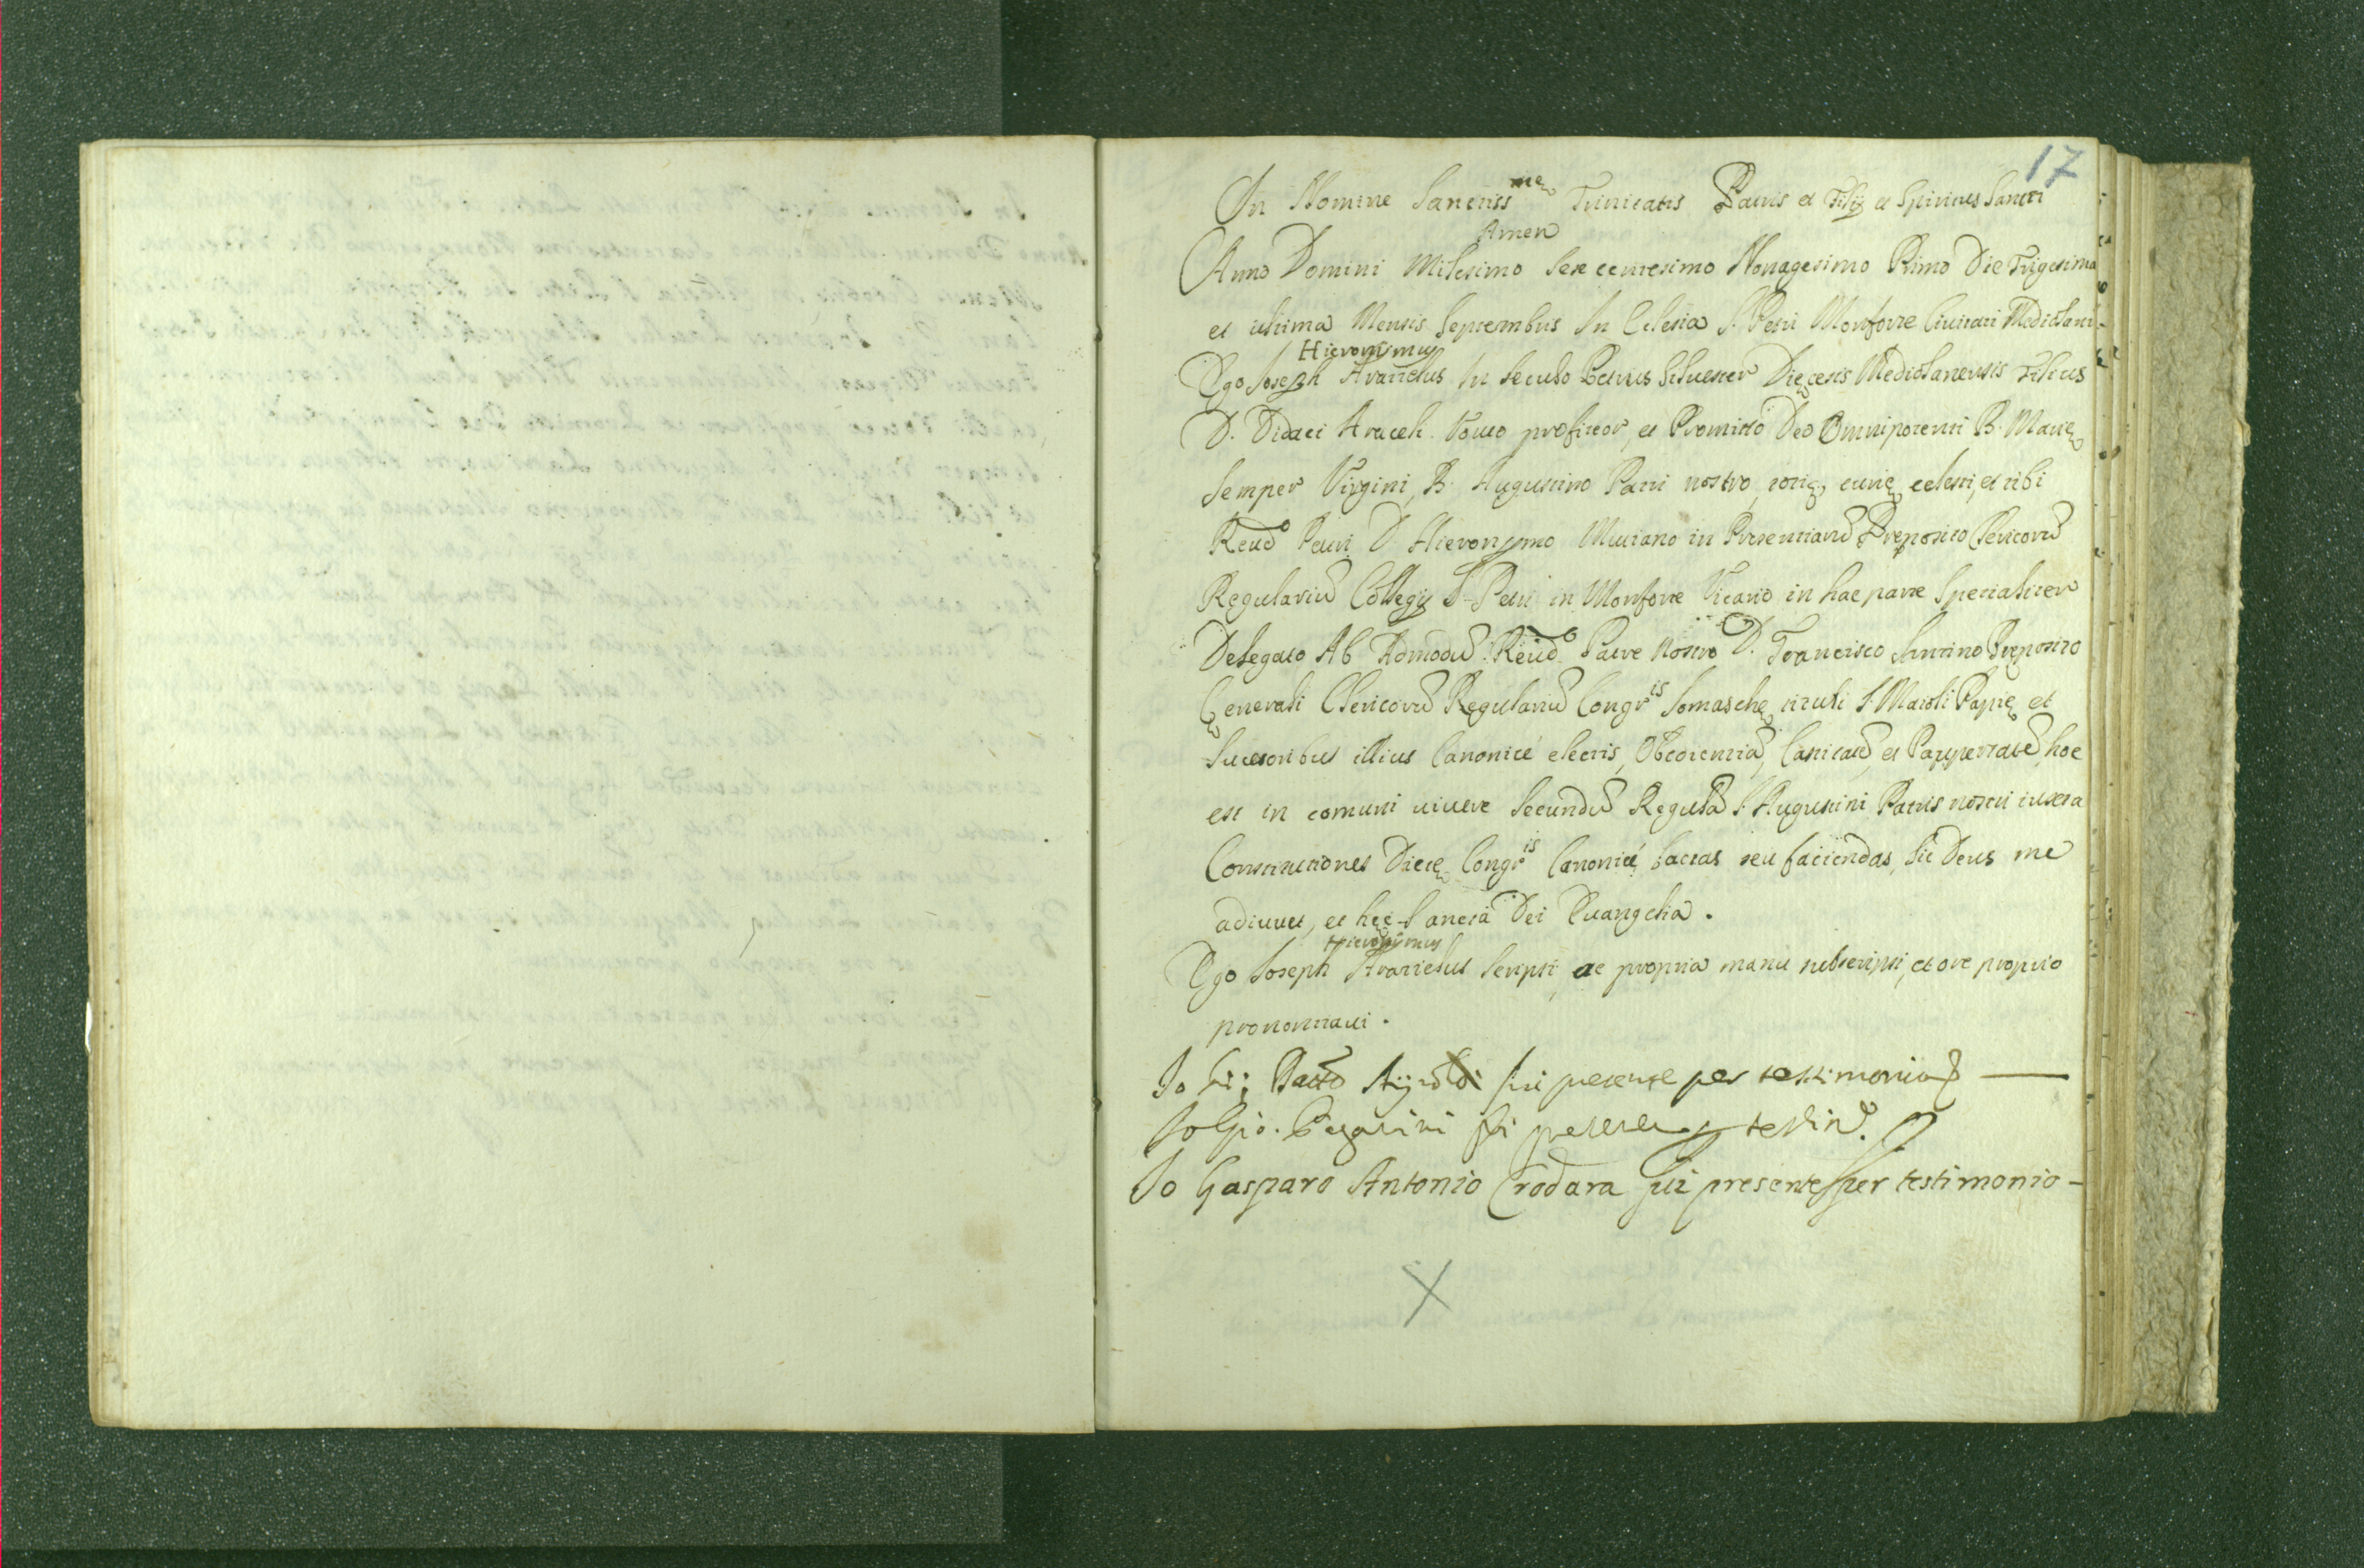 17
In Nomine Sanctiss.mę Trinitatis Patris et Filij et Spiritus Sancti
Amen
Anno Domini Milesimo Sex centesimo Nonagesimo Primo Die Trigesima
et ultima Mensis Septembris In Eclesia S. Petri Monforte Civitati Mediolani
Hieronimus
Ego Joseph Aracielus In seculo Petrus Silvester Dięcesis Mediolanensis Filius
D. Didaci Aracieli. Voveo profiteor, et Promitto Deo Omnipotenti B. Marię
Semper Virgini, B. Augustino Patri nostro, totię curię celesti, et tibi
Revdo Patri D. Hieronymo Muciano in Presentiarū Pręposito Clericorū
Regulariū Collegij S. Petri in Monforte Vicario in hac parte Specialiter
Delegato Ab Admodū Revdo Patre Nostro D. Francisco Santino Pręposito
Generali Clericorū Regulariū Congr.is Somaschę tituli S. Maioli Papię et
Sucesoribus illius Canonicé electis, Obedientiā, Castitatē, et Paupertatē, hoc
est in comuni vivere Secundū Regulā S. Augustini Patris nostri iuxta
Constitutiones Dictę Congr.is Canonicé factas seu faciendas, Sic Deus me
adiuvet, et hęc Sancta Dei Evangelia.
Hieronimus
Ego Joseph Aracielus Scripsi, ac propria manu subscripsi, et ore proprio
prononciavi.
Io fui presente per testimonio
Io Gio. fui presente per testim.o
Io Gasparo Antonio Crodara fui presente per testimonio